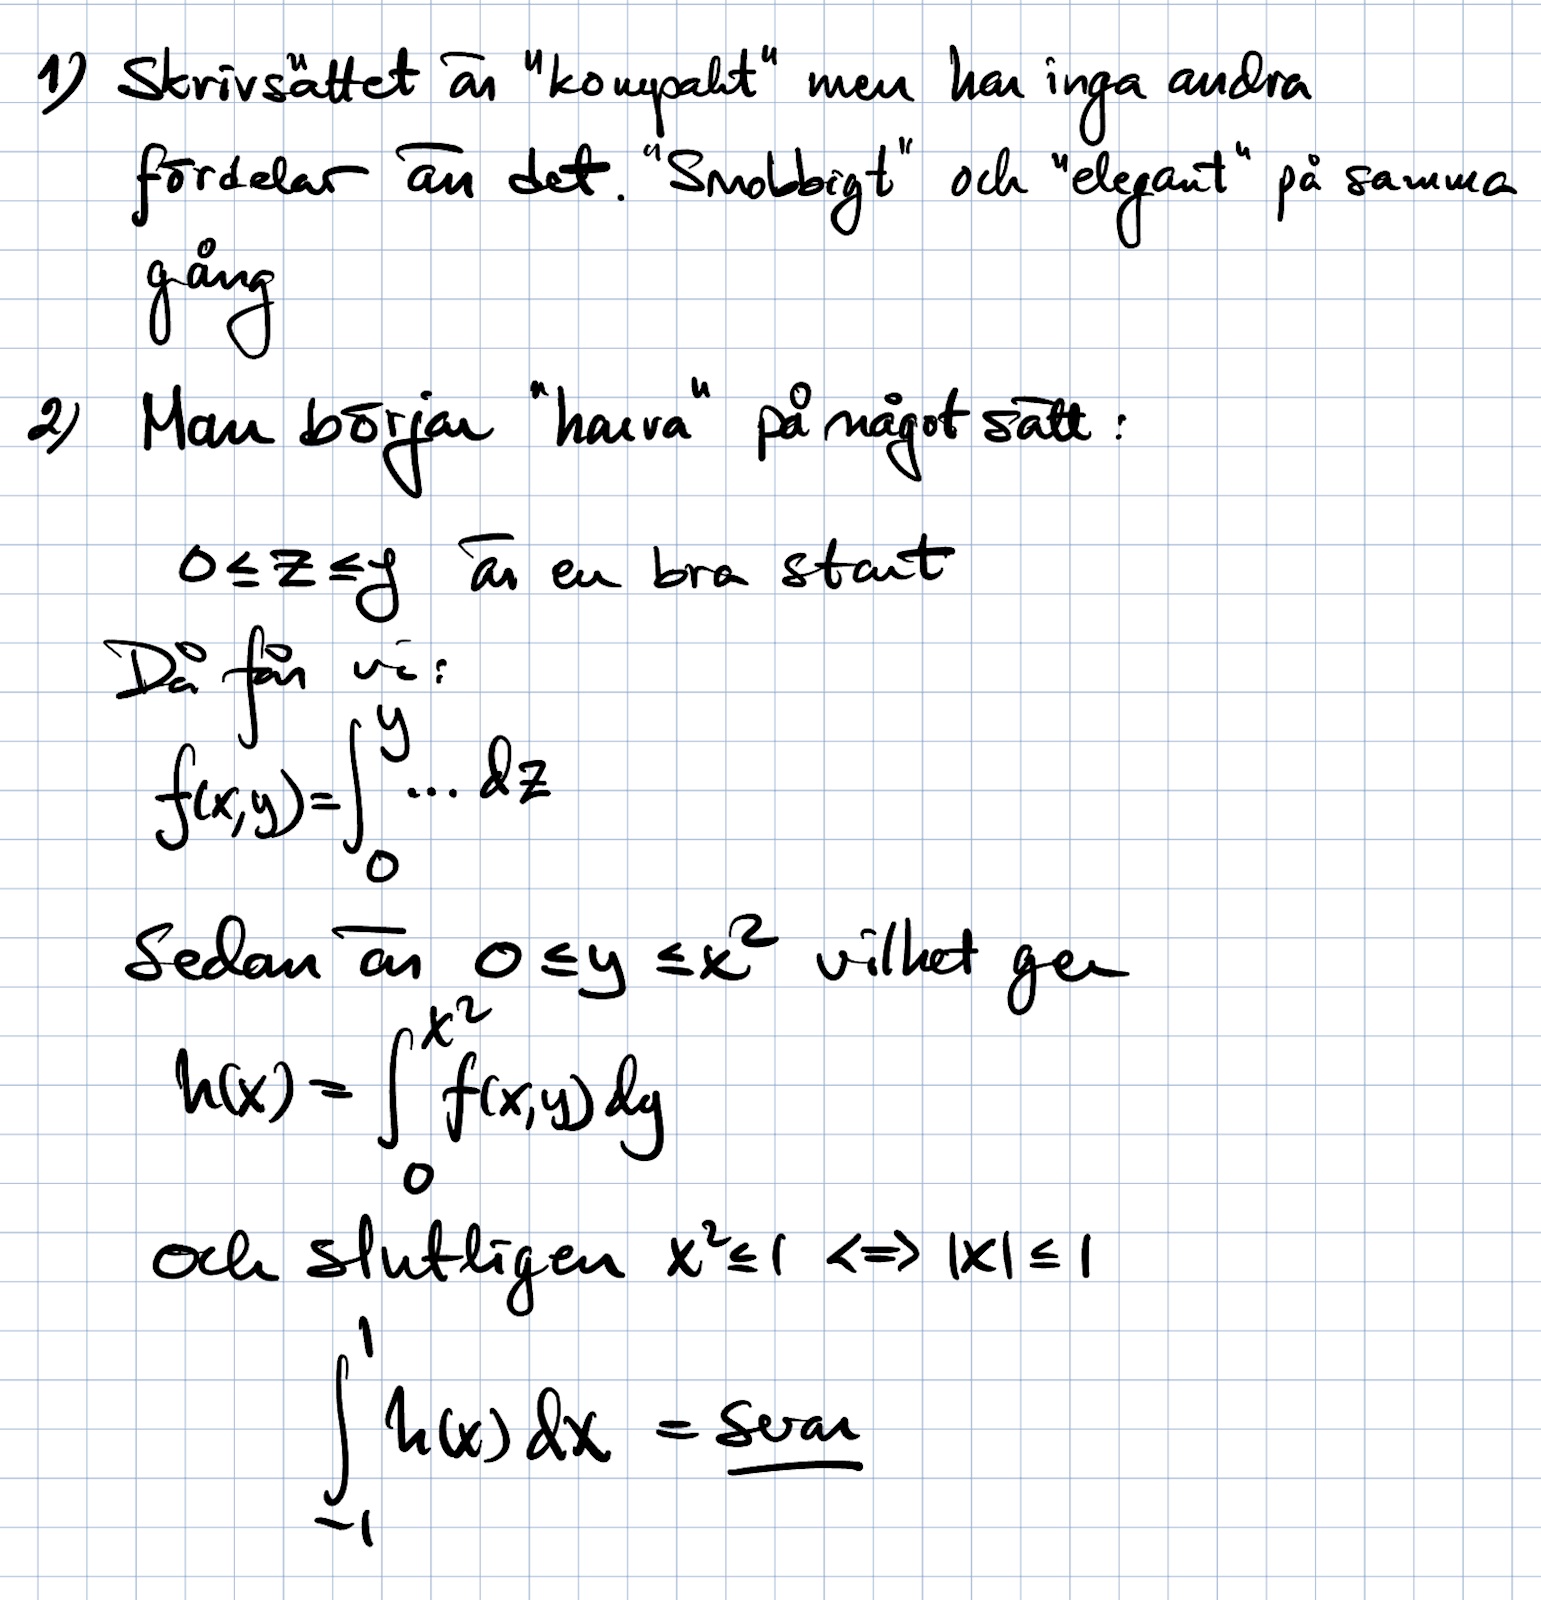 1) Skrivsättet är "kompakt" men har inga andra
fördelar än det. "Snobbigt" och "elegant" på samma
gång
2) Man börjar "harva" på något sätt:
0 ≤ z ≤ y är en bra start
Då får vi:
f(x,y) = ∫₀^y ... dz
Sedan är 0 ≤ y ≤ x² vilket ger
h(x) = ∫₀^{x²} f(x,y) dy
och slutligen x² ≤ 1 <=> |x| ≤ 1
∫₋₁^1 h(x) dx = svar